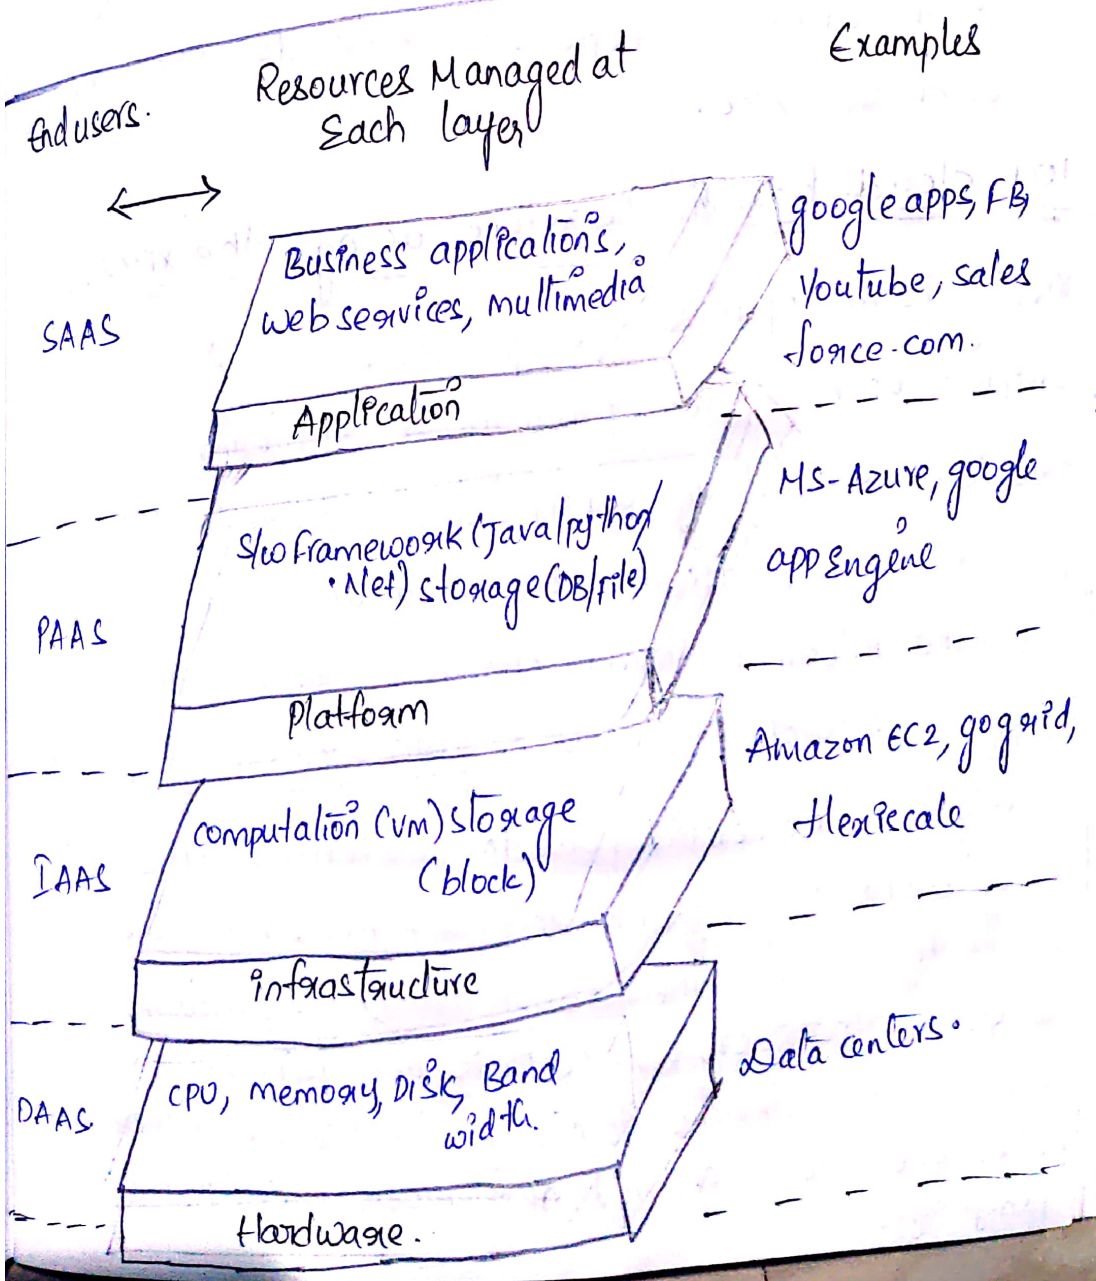 End users.
Resources Managed at
Each layer
Examples
SAAS
Business applications,
web services, multimedia
Application
google apps, FB,
Youtube, sales
force.com.
PAAS
S/w framework (Java/python/
.Net) storage (DB/File)
Platform
MS-Azure, google
app Engine
IAAS
computation (VM) storage
(block)
infrastructure
Amazon EC2, gogrid,
flexiscale
DAAS
CPU, memory, Disk, Band
width.
Hardware.
Data centers.